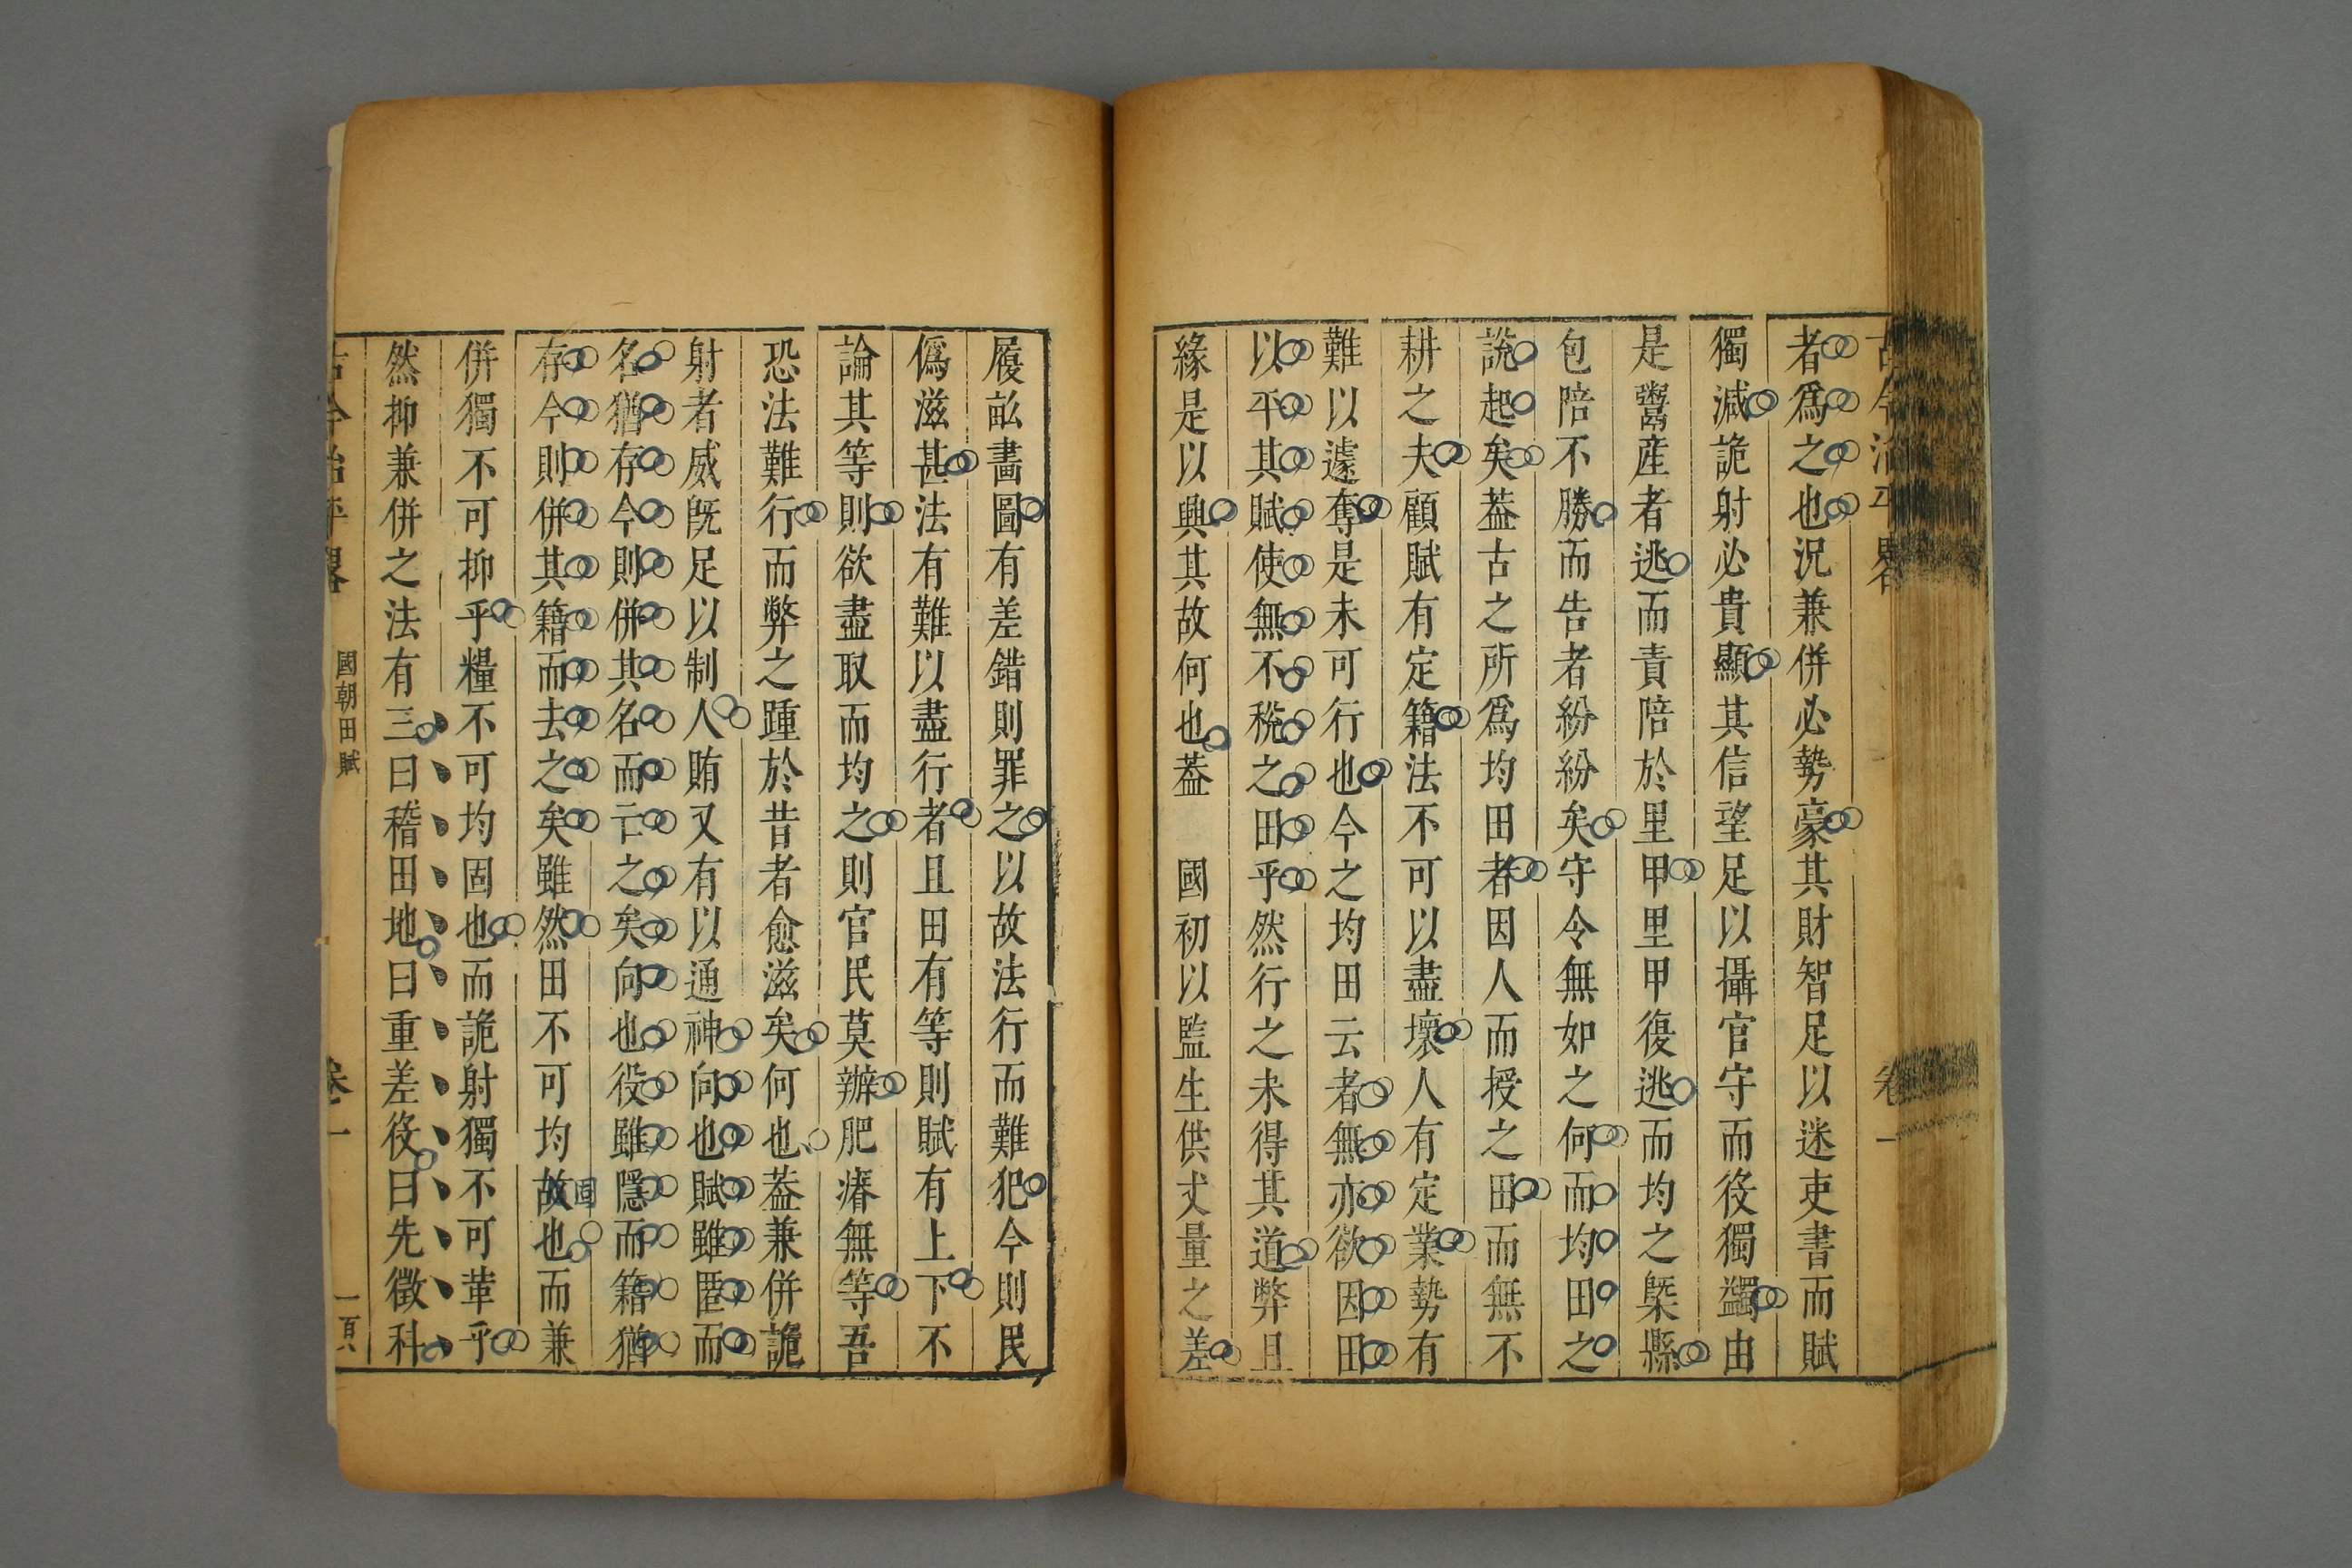 古今治平畧　卷一
者爲之也況兼併必勢豪其財智足以迷吏書而賦
獨減詭射必貴顯其信望足以攝官守而役獨蠲由
是鬻産者逃而責陪於里甲里甲復逃而均之槩縣
包陪不勝而告者紛紛矣守令無如之何而均田之
說起矣葢古之所爲均田者因人而授之田而無不
耕之夫顧賦有定籍法不可以盡壞人有定業勢有
難以遽奪是未可行也今之均田云者無亦欲因田
以平其賦使無不稅之田乎然行之未得其道弊且
緣是以興其故何也葢　國初以監生供丈量之差
履畝畫圖有差錯則罪之以故法行而難犯今則民
僞滋甚法有難以盡行者且田有等則賦有上下不
論其等則欲盡取而均之則官民莫辦肥瘠無等吾
恐法難行而弊之踵於昔者愈滋矣何也葢兼併詭
射者威旣足以制人賄又有以通神向也賦雖匿而
名猶存今則併其名而亡之矣向也役雖隱而籍猶
存今則併其籍而去之矣雖然田不可均故也而兼
固
併獨不可抑乎糧不可均固也而詭射獨不可革乎
然抑兼併之法有三曰稽田地曰重差役曰先徵科
古今治平畧　國朝田賦　卷一　一百八